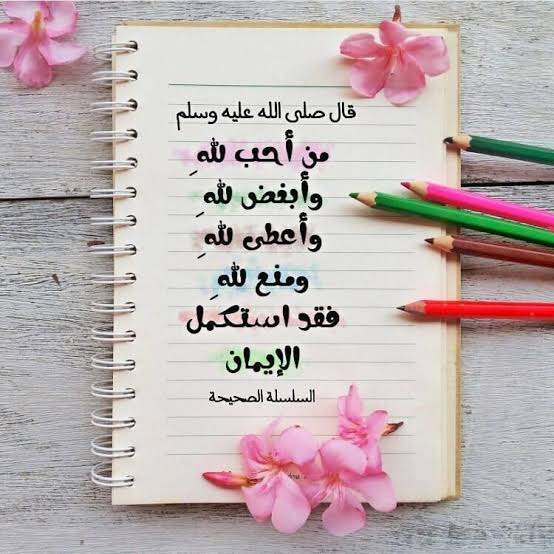 قال صلى الله عليه وسلم
من أحب للهِ
وأبغض للهِ
وأعطى للهِ
ومنع للهِ
فقد استكمل
الإيمان
السلسلة الصحيحة